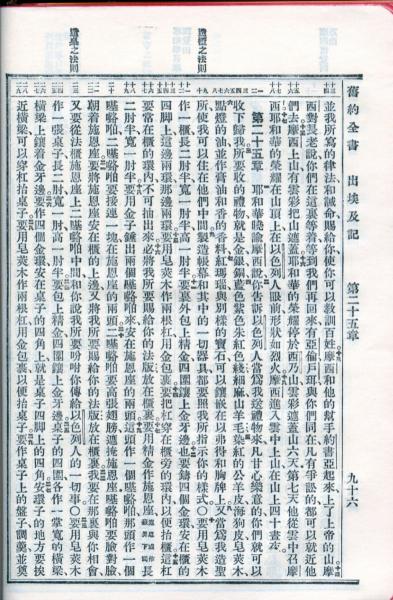 舊約全書 出埃及記 第二十五章 九十六
並我所寫的律法和誡命賜給你使你可以敎訓百姓摩西和他的幫手約書亞起來上了上帝的山摩
西對長老說你們在這裏等着等到我們再回來有亞倫戶珥與你們同在凡有爭訟的都可以就近他
們去摩西上山有雲彩把山遮蓋耶和華的榮耀停於西乃山雲彩遮蓋山六天第七天他從雲中召摩
西耶和華的榮耀在山頂上在以色列人眼前形狀如烈火摩西進入雲中上山在山上四十晝夜
第二十五章 耶和華曉諭摩西說你告訴以色列人當爲我送禮物來凡甘心樂意的你們就可以
收下歸我所要收的禮物就是金銀銅藍色紫色朱紅色綫細麻山羊毛染紅的公羊皮海狗皮皂莢木
點燈的油並作膏油和香的香料紅瑪瑙與別樣的寶石可以鑲嵌在以弗得和胸牌上又當爲我造聖
所使我可以住在他們中間製造帳幕和其中的一切器具都要照我所指示你的樣式〇要用皂莢木
作一櫃長二肘半寬一肘半高一肘半要裏外包上精金四圍鑲上金牙邊也要鑄四個金環安在櫃的
四脚上這邊兩環那邊兩環要用皂莢木作兩根杠用金包裹要把杠穿在櫃旁的環內以便抬櫃這杠
要常在櫃的環內不可抽出來必將我所要賜給你的法版放在櫃裏要用精金作施恩座長
二肘半寬一肘半要用金子錘出兩個來安在施恩座的兩頭這頭作一個那頭作一個
要接連一塊在施恩座的兩頭要高張翅膀遮掩施恩座要臉對臉
朝着施恩座要將施恩座安在櫃的上邊又將我所要賜給你的法版放在櫃裏我要在那裏與你相會
又要從法櫃施恩座上二中間和你說我所要吩咐你傳給以色列人的一切事〇要用皂莢木
作一張桌子長二肘寬一肘高一肘半要包上精金四圍鑲上金牙邊桌子的四圍各作一掌寬的橫梁
橫梁上鑲着金牙邊要作四個金環安在桌子的四角上就是桌子四脚上的四角安環子的地方要挨
近橫梁可以穿杠抬桌子要用皂莢木作兩根杠用金包裹以便抬桌子要作桌子上的盤子調羹並奠
造櫃之法則
造桌之法則